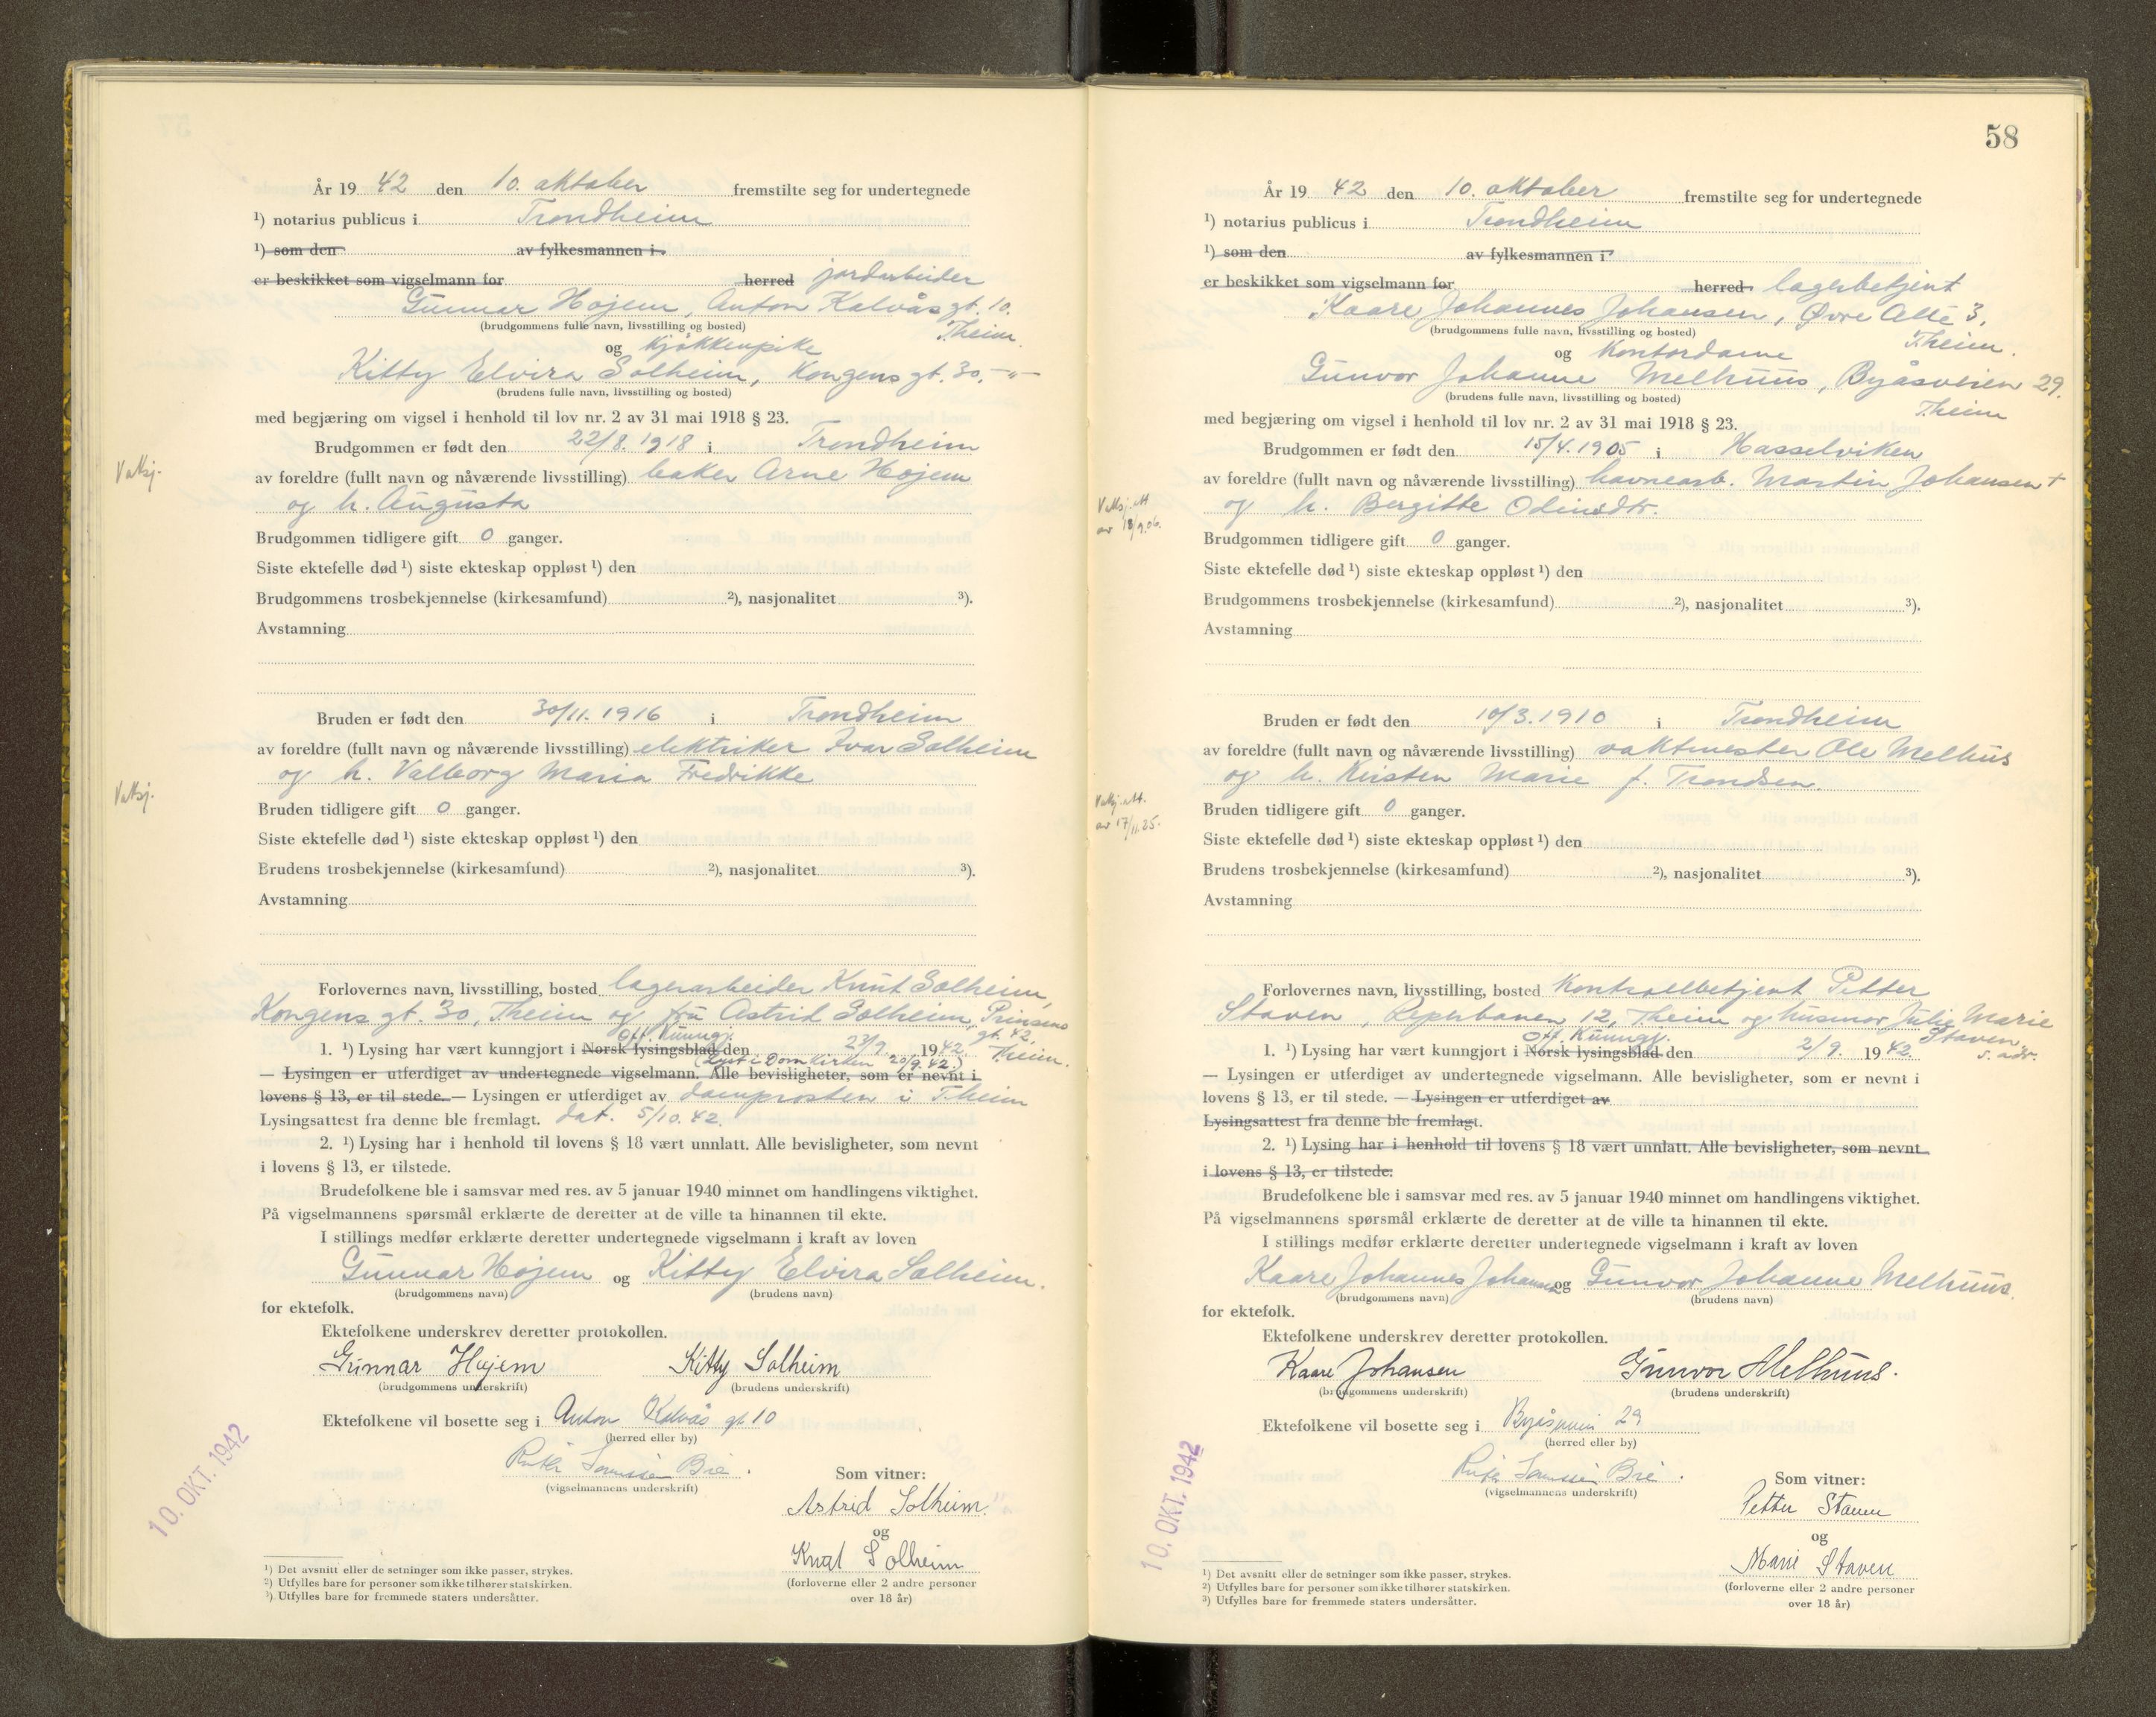 År 19 42 den 10. oktober fremstilte seg for undertegnede
¹) notarius publicus i Trondheim
¹) som den av fylkesmannen i
er beskikket som vigselmann for herred jordarbeider
Gunnar Højem, Anton Kalvås gt. 10.
(brudgommens fulle navn, livsstilling og bosted) Theim.
og kjøkkenpike
Kitty Elvira Solheim, Kongens gt. 30, -"-
(brudens fulle navn, livsstilling og bosted)
med begjæring om vigsel i henhold til lov nr. 2 av 31 mai 1918 § 23.
Brudgommen er født den 22/8. 1918 i Trondheim
av foreldre (fullt navn og nåværende livsstilling) baker Arne Højem
og h. Augusta
Brudgommen tidligere gift 0 ganger.
Siste ektefelle død ¹) siste ekteskap oppløst ¹) den
Brudgommens trosbekjennelse (kirkesamfund) ²), nasjonalitet ³).
Avstamning
Bruden er født den 30/11. 1916 i Trondheim
av foreldre (fullt navn og nåværende livsstilling) elektriker Ivar Solheim
og h. Valborg Maria Fredrikke
Bruden tidligere gift 0 ganger.
Siste ektefelle død ¹) siste ekteskap oppløst ¹) den
Brudens trosbekjennelse (kirkesamfund) ²), nasjonalitet ³).
Avstamning
Forlovernes navn, livsstilling, bosted lagerarbeider Knut Solheim,
Kongens gt. 30, Theim og fru Astrid Solheim, Prinsens
gt. 42, Theim.
Off. Kunngj.
1. ¹) Lysing har vært kunngjort i Norsk lysingsblad den 23/9. 1942.
(lyst i Domkirken 20/9. 42.)
— Lysingen er utferdiget av undertegnede vigselmann. Alle bevisligheter, som er nevnt i
lovens § 13, er til stede. — Lysingen er utferdiget av domprosten i Theim
Lysingsattest fra denne ble fremlagt. dat. 5/10. 42.
2. ¹) Lysing har i henhold til lovens § 18 vært unnlatt. Alle bevisligheter, som nevnt
i lovens § 13, er tilstede.
Brudefolkene ble i samsvar med res. av 5 januar 1940 minnet om handlingens viktighet.
På vigselmannens spørsmål erklærte de deretter at de ville ta hinannen til ekte.
I stillings medfør erklærte deretter undertegnede vigselmann i kraft av loven
Gunnar Højem og Kitty Elvira Solheim.
(brudgommens navn) (brudens navn)
for ektefolk.
Ektefolkene underskrev deretter protokollen.
Gunnar Højem Kitty Solheim
(brudgommens underskrift) (brudens underskrift)
Ektefolkene vil bosette seg i Anton Kalvås gt 10
(herred eller by)
Ruth Bie.
(vigselmannens underskrift)
Som vitner:
Astrid Solheim.
og
Knut Solheim
(forloverne eller 2 andre personer
over 18 år)
10. OKT. 1942
¹) Det avsnitt eller de setninger som ikke passer, strykes.
²) Utfylles bare for personer som ikke tilhører statskirken.
³) Utfylles bare for fremmede staters undersåtter.
58
År 19 42 den 10. oktober fremstilte seg for undertegnede
¹) notarius publicus i Trondheim
¹) som den av fylkesmannen i
er beskikket som vigselmann for herred lagerbetjent
Kaare Johannes Johansen, Øvre Allé 3,
(brudgommens fulle navn, livsstilling og bosted) Theim.
og Kontordame
Gunvor Johanne Melhuus, Byåsveien 29.
(brudens fulle navn, livsstilling og bosted) Theim
med begjæring om vigsel i henhold til lov nr. 2 av 31 mai 1918 § 23.
Brudgommen er født den 15/4. 1905 i Hasselviken
av foreldre (fullt navn og nåværende livsstilling) havnearb. Martin Johansen +
og h. Bergitte Odinsdtr.
Brudgommen tidligere gift 0 ganger.
Siste ektefelle død ¹) siste ekteskap oppløst ¹) den
Brudgommens trosbekjennelse (kirkesamfund) ²), nasjonalitet ³).
Avstamning
Bruden er født den 10/3. 1910 i Trondheim
av foreldre (fullt navn og nåværende livsstilling) vaktmester Ole Melhus
og h. Kirsten Marie f. Trondsen.
Bruden tidligere gift 0 ganger.
Siste ektefelle død ¹) siste ekteskap oppløst ¹) den
Brudens trosbekjennelse (kirkesamfund) ²), nasjonalitet ³).
Avstamning
Forlovernes navn, livsstilling, bosted Kontrollbetjent Petter
Staven, Reperbanen 12, Theim og husmor Julie Marie
Staven, s. adr.
Off. Kunngj.
1. ¹) Lysing har vært kunngjort i Norsk lysingsblad den 2/9. 1942.
— Lysingen er utferdiget av undertegnede vigselmann. Alle bevisligheter, som er nevnt i
lovens § 13, er til stede. — Lysingen er utferdiget av
Lysingsattest fra denne ble fremlagt.
2. ¹) Lysing har i henhold til lovens § 18 vært unnlatt. Alle bevisligheter, som nevnt
i lovens § 13, er tilstede.
Brudefolkene ble i samsvar med res. av 5 januar 1940 minnet om handlingens viktighet.
På vigselmannens spørsmål erklærte de deretter at de ville ta hinannen til ekte.
I stillings medfør erklærte deretter undertegnede vigselmann i kraft av loven
Kaare Johannes Johansen og Gunvor Johanne Melhuus.
(brudgommens navn) (brudens navn)
for ektefolk.
Ektefolkene underskrev deretter protokollen.
Kaare Johansen Gunvor Melhuus.
(brudgommens underskrift) (brudens underskrift)
Ektefolkene vil bosette seg i Byåsveien 29
(herred eller by)
Ruth Bie.
(vigselmannens underskrift)
Som vitner:
Petter Staven
og
Marie Staven
(forloverne eller 2 andre personer
over 18 år)
10. OKT. 1942
¹) Det avsnitt eller de setninger som ikke passer, strykes.
²) Utfylles bare for personer som ikke tilhører statskirken.
³) Utfylles bare for fremmede staters undersåtter.